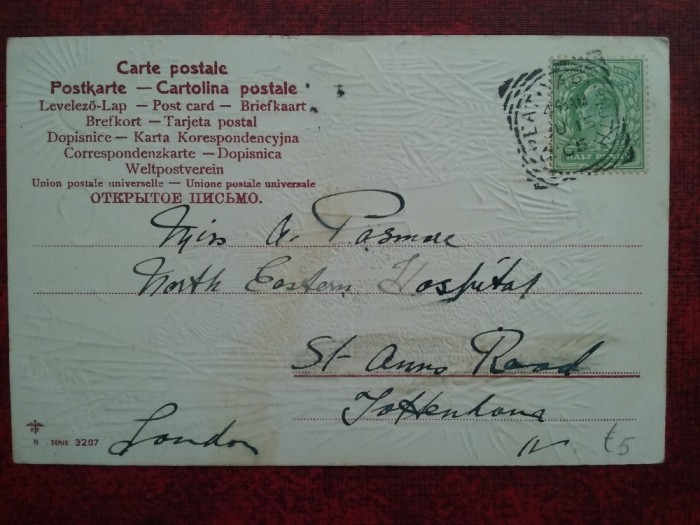 Carte postale
Postkarte — Cartolina postale
Levelező-Lap — Post card — Briefkaart
Brefkort — Tarjeta postal
Dopisnice — Karta Korespondencyjna
Correspondenzkarte — Dopisnica
Weltpostverein
Union postale universelle — Unione postale universale
ОТКРЫТОЕ ПИСЬМО.
HALF PENNY
Miss A. Pasmore
North Eastern Hospital
St Anns Road
Tottenham
London N.
£5
8 SERIE 3207